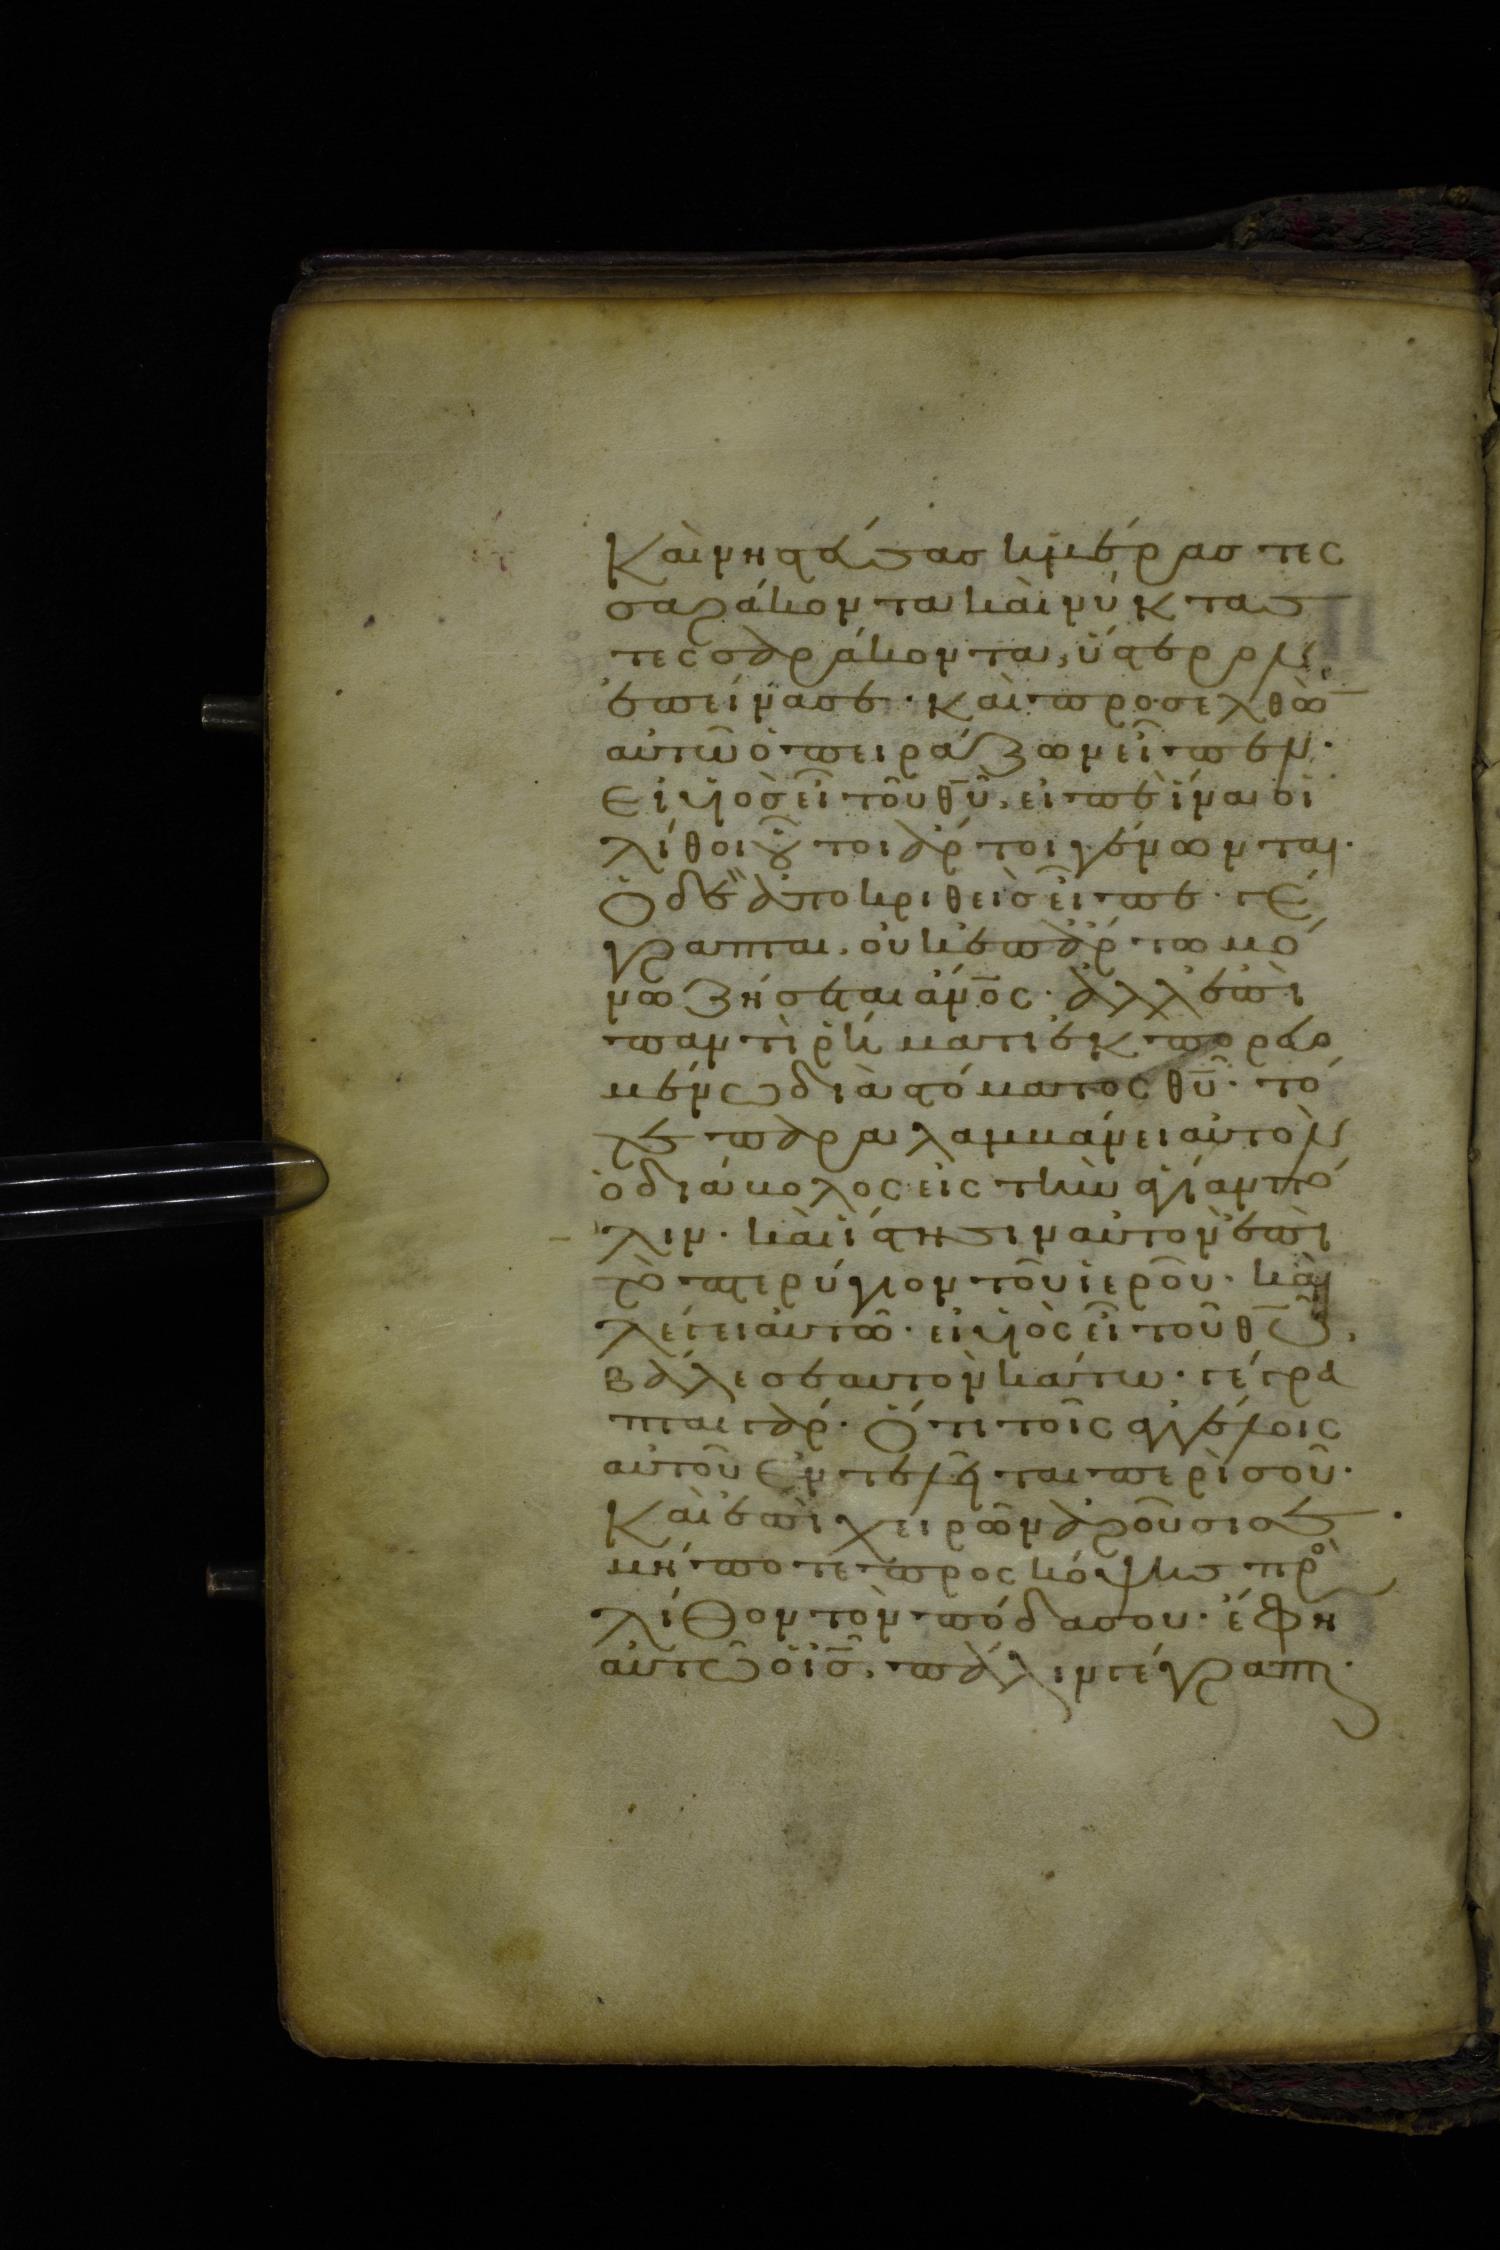 Καὶ νηστεύσας ἡμέρας τεσ
σαράκοντα καὶ νύκτας
τεσσαράκοντα, ὕστερον
ἐπείνασε· καὶ προσελθὼ̅
αὐτῶ ὁ πειράζων εἶπεν·
Εἰ υἱὸς εἶ τοῦ θ̅υ̅, εἰπὲ ἵνα οἱ
λίθοι οὗτοι ἄρτοι γένωνται·
Ὁ δὲ ἀποκριθεὶς εἶπε· γέ
γραπται, οὐκ ἐπ ἄρτω μό
νω ζήσεται ἄν̅ο̅ς· ἀλλ ἐπὶ
παντὶ ῥήματι ἐκπορευο
μένω διὰ στόματος θ̅υ̅· τό
τε παραλαμβάνει αὐτὸν
ὁ διάβολος εἰς τὴν ἁγίαν πό
λιν· καὶ ἵστησιν αὐτὸν ἐπὶ
τὸ πτερύγιον τοῦ ἱεροῦ· καὶ
λέγει αὐτῶ· εἰ υἱὸς εἶ τοῦ θ̅υ̅,
βάλε σεαυτὸν κάτω· γέγρα
πται γάρ· Ὅτι τοῖς ἀγγέλοις
αὐτοῦ ἐντελεῖται περὶ σοῦ·
Καὶ ἐπὶ χειρῶν ἀροῦσι σε·
μήποτε προσκόψης πρὸ
λίθον τὸν πόδα σου· ἔφη
αὐτῶ ὁ ι̅σ̅, πάλιν γέγραπτ